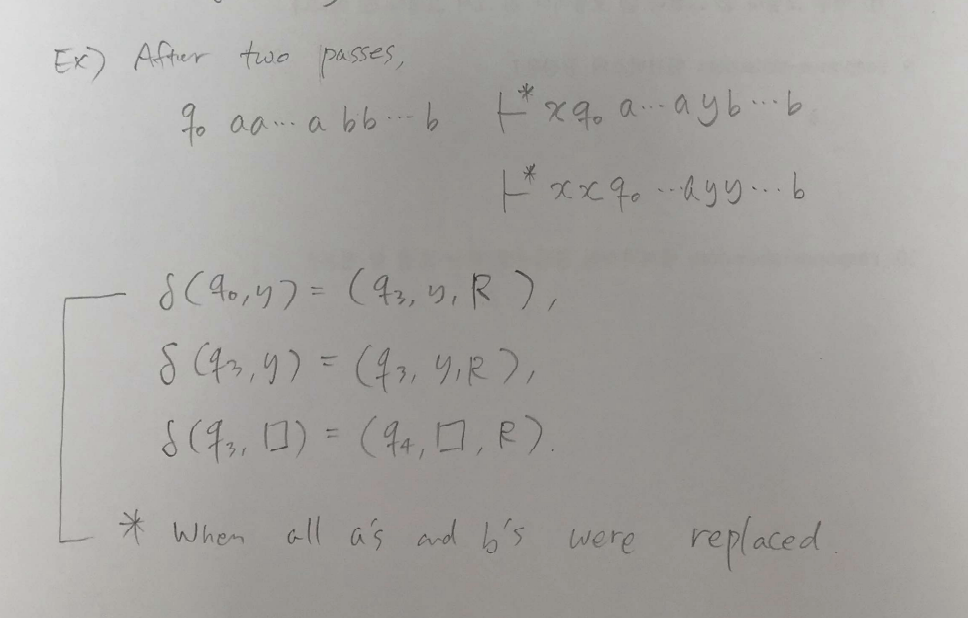 Ex) After two passes,
q₀ aa⋯a bb⋯b ⊢* xq₀ a⋯ayb⋯b
⊢* xxq₀ ⋯ayy⋯b
δ(q₀,y) = (q₃, y, R),
δ(q₃,y) = (q₃, y, R),
δ(q₃, □) = (q₄, □, R).
* When all a's and b's were replaced.